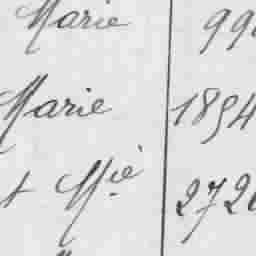 Marie 99
Marie 1894
t Mie 272